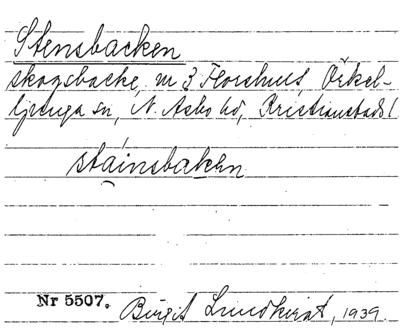 Stensbacken
skogsbacke, nr 3 Florshult, Örkel-
ljunga sn, N. Asbo hd, Kristianstads l
stáinsbakən
Nr 5507. Birgit Lundkvist, 1939.